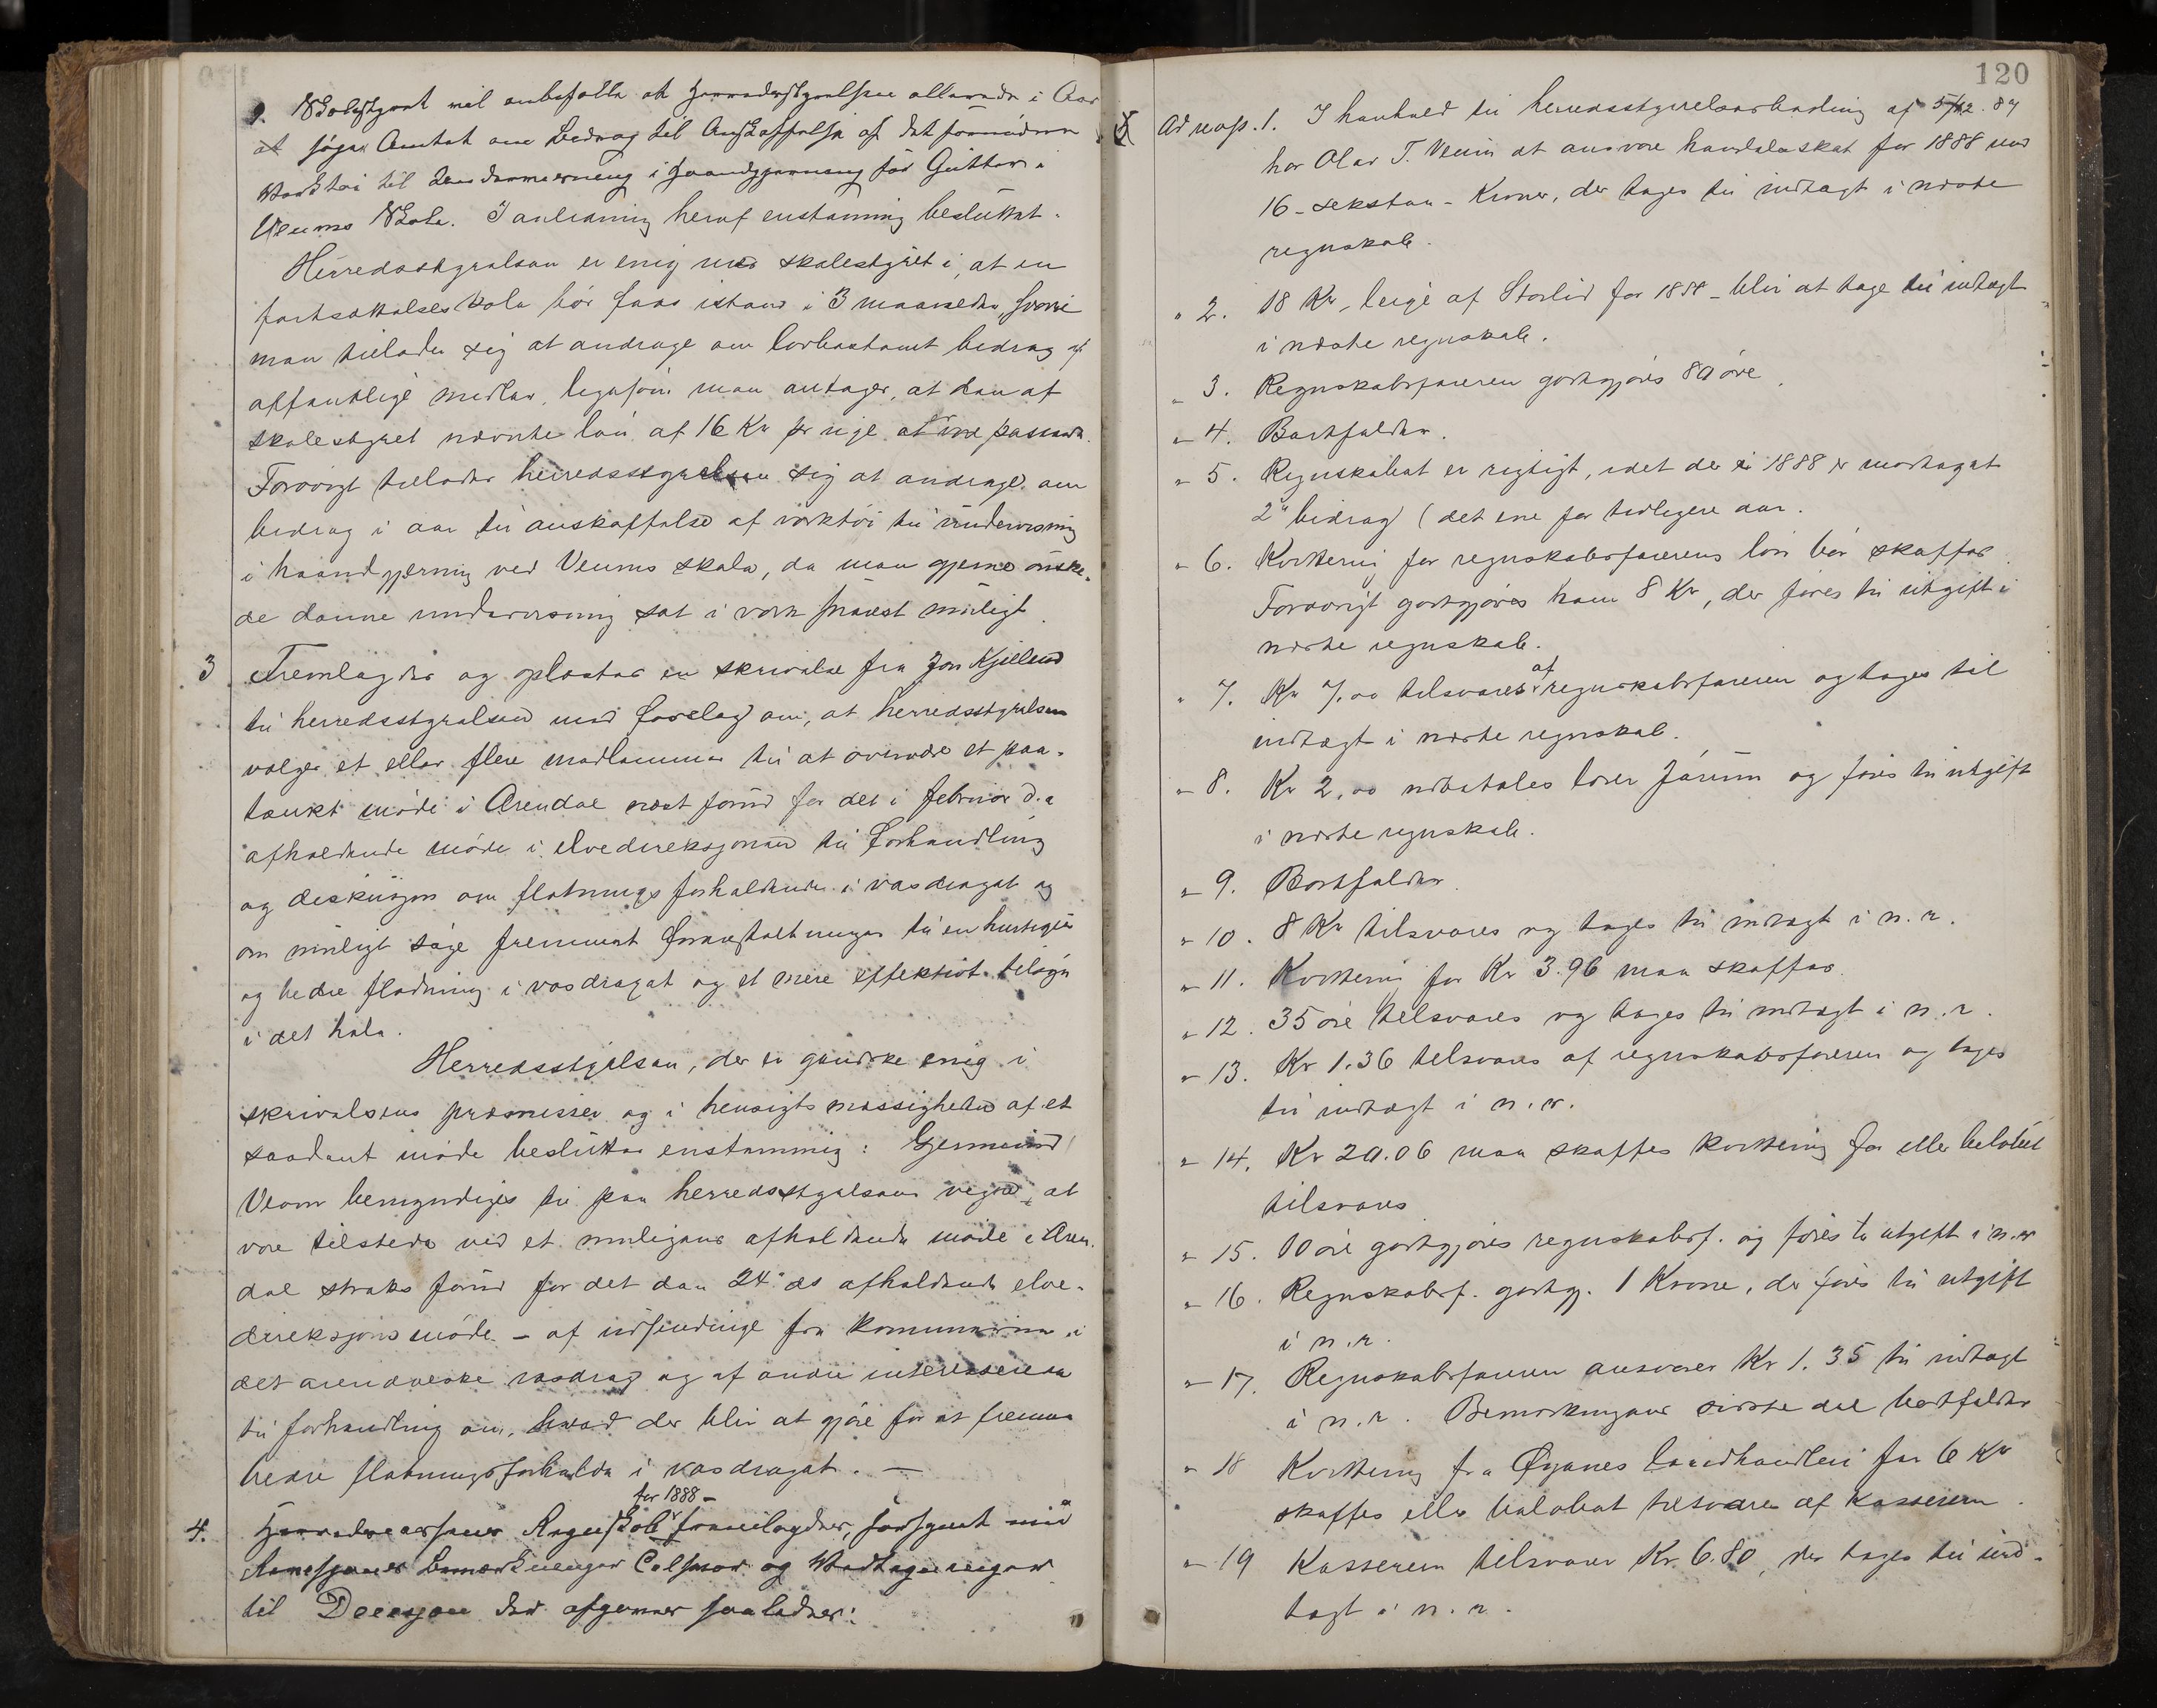 2. Skolestyret vil anbefale at Herredsstyrelsen allerede i Aar
at søge Amtet om Bidrag til Anskaffelse af det fornødne
Værktøi til Undervisning i Haandgjerning for Gutter i
Veums Skole. I anledning heraf enstemmig besluttet:
Herredsstyrelsen er enig med skolestyret i, at en
fortsættelsesskole bør faaes istand i 3 maaneder, hvori
man tillader sig at andrage om lovbestemt bidrag af
offentlige midler, ligesom man antager, at den af
skolestyret nævnte løn af 16 Kr pr uge at være passende.
Forøvrigt tillader herredsstyrelsen sig at andrage om
bidrag i aar til anskaffelse af værktøi til undervisning
i haandgjerning ved Veums skole, da man gjerne ønske-
de denne undervisning sat i værk snarest muligt.
3 Fremlagdes og oplæstes en skrivelse fra Jon Kjilleno
til herredsstyrelsen med forslag om, at herredsstyrelsen
vælger et eller flere medlemmer til at overvære et paa-
tænkt møde i Arendal næst forud for det i februar d.a
afholdende møde i elvedireksjonen til forhandling
og diskusjon om fløtningsforholdende i vasdraget og
om muligt søge fremmet foranstaltninger til en hurtigere
og bedre flødning i vasdraget og et mere effektivt tilsyn
i det hele.
Herredsstyrelsen, der er ganske enig i
skrivelsens præmisser og i hensigtsmæssigheden af et
saadant møde beslutter enstemmig: Gjermund
Veum bemyndiges til paa herredsstyrelsens vegne, at
være tilstede ved et muligens afholdende møde i Aren-
dal straks forud for det den 24de ds afholdende elve-
direksjonsmøde – af udsendinge fra kommunerne i
det arendalske vasdrag og af andre interesserede
til forhandling om, hvad der blir at gjøre for at fremme
bedre fløtningsforholde i vasdraget. –
for 1888 –
4. Herredskassens Regnskab fremlagdes, forsynet med
Revisjonens Bemærkninger Besvar og Vedtegninger
til Desisjon der afgjøres saaledes:
120
Ad nasp. 1. I henhold til herredsstyrelsesbeslutning af 5/12. 87
har Olav T. Veum at ansvare handelsskat for 1888 med
16 – seksten – Kroner, der tages til indtægt i næste
regnskab.
" 2. 18 Kr, leige af Storlid for 1888 – blir at tage til indtægt
i næste regnskab.
" 3. Regnskabsføreren godtgjøres 80 øre.
" 4. Bortfalder.
" 5. Regnskabet er rigtigt, idet der i 1888 er modtaget
2de bidrag (det ene for tidligere aar.
" 6. Kvittering for regnskabsførerens løn bør skaffes.
Forøvrigt godtgjøres ham 8 Kr, der føres til utgift i
næste regnskab.
" 7. Kr 7.00 tilsvares af regnskabsføreren og tages til
indtægt i næste regnskab.
" 8. Kr 2,00 udbetales lærer Jørum og føres til utgift
i næste regnskab.
" 9. Bortfalder
" 10. 8 Kr tilsvares og tages til indtægt i n. r.
" 11. Kvittering for Kr 3.96 maa skaffes.
" 12. 35 øre tilsvares og tages til indtægt i n. r.
" 13. Kr 1.36 tilsvares af regnskabsføreren og tages
til indtægt i n. r.
" 14. Kr 20.06 maa skaffes kvittering for eller beløbet
tilsvares
" 15. 10 øre godtgjøres regnskabsf. og føres til utgift i n.r
" 16. Regnskabsf. godtg. 1 Krone, der føres til utgift
i n. r.
" 17. Regnskabsføreren ansvarer Kr 1.35 til indtægt
i n. r. Bemærkningens sidste del bortfalder
" 18 Kvittering fra Øyanes landhandleri for 6 Kr
skaffes eller beløbet tilsvares af kasseren.
" 19 Kasseren tilsvarer Kr. 6.80, der tages til ind-
tægt i n. r.